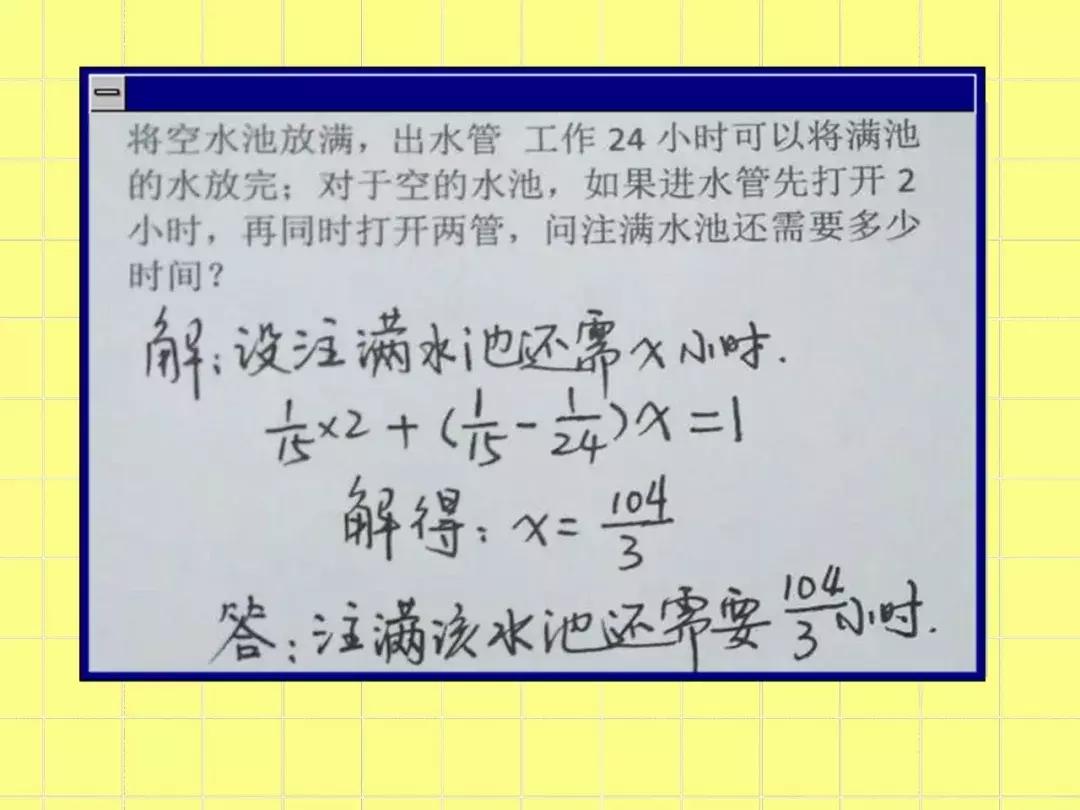 将空水池放满，出水管 工作 24 小时可以将满池
的水放完；对于空的水池，如果进水管先打开 2
小时，再同时打开两管，问注满水池还需要多少
时间？
解：设注满水池还需x小时.
1/15×2+(1/15-1/24)x=1
解得：x=104/3
答：注满该水池还需要104/3小时.